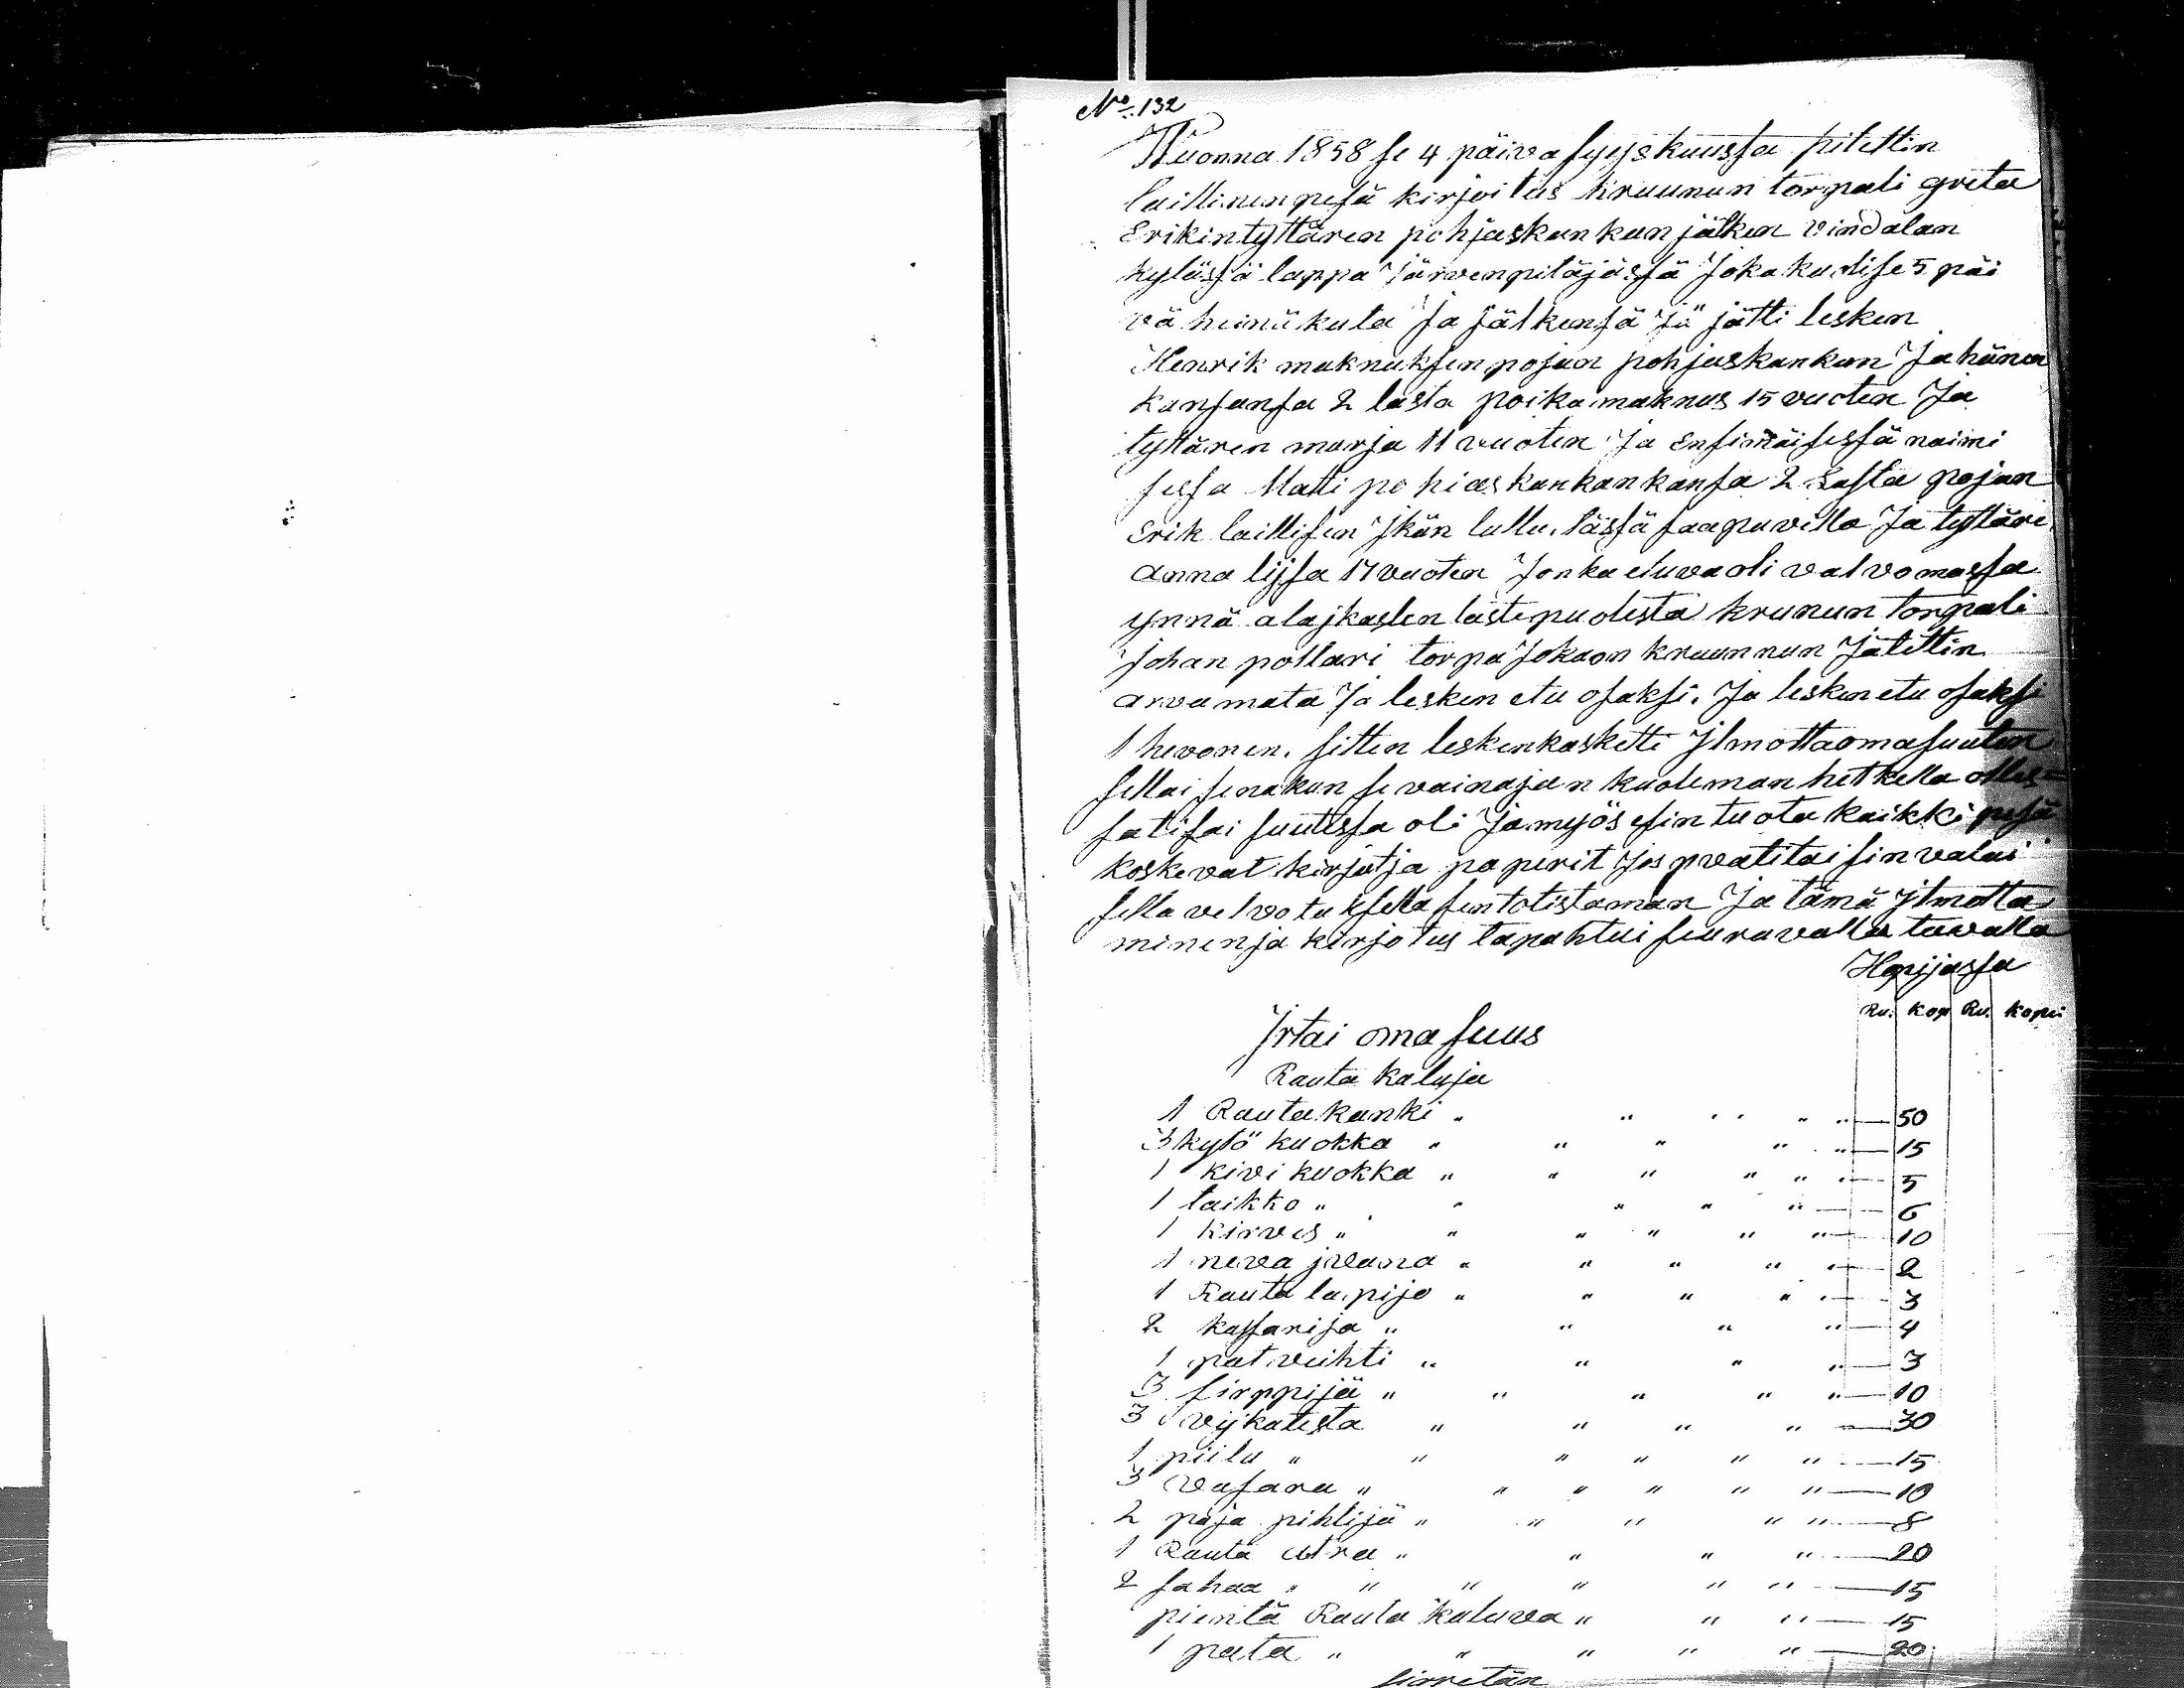 No. 132
Wuonna 1858 se 4 päiva syyskuussa pitettin
laillinen pesä kirjoitus kruunun torpali greta
Erikintyttären pohjaskankan jälken vindalan
kylässä lappa Järvenpitäjässä Joka kuoli se 5 päi
vä heinäkuta Ja Jälkensä Jä jätti lesken
Henrik maknuksen pojan pohjaskankan Ja hänen
kansansa 2 lasta poika maknus 15 vuoten Ja
tyttären marja 11 vuoten Ja Ensimäisessä naimi
sessa Matti pohiaskankan kansa 2 Lasta pojan
Erik laillisen Jkän lullu, tässä saapuvilla Ja tyttäri
Anna lijsa 17 vuoten Jonka etuva oli valvomassa
ynnä alajkasten lastepuolesta krunun torpali
Johan pollari torpa Joka on kruunnun Jätettin
arvamata Ja lesken etu osaksi, Ja lesken etu osaksi
1 hevonen, sitten leskenkasketti Jlmottaomasuuten
sellaisena kun se vainajan kuoleman hetkella olles=
sa ti sai suutessa oli Ja myös esin tuota kaikki pesä
koskevat kirjat ja paperit Jos pvatitai sin valai
sella velvotuksella sen totistaman Ja tämä Jlmotta
minen ja kirjotus tapahtui seuravalla tavalla
Hopijassa
Ru. Kop Ru. Kopei
Jrtai omasuus
Rauta kaluja
1 Rautakanki " " " " " — 50
3 kytö kuokka " " " " " — 15
1 kivi kuokka " " " " " " — 5
1 taikko " " " " " — 6
1 kirves " " " " " " — 10
1 neva javana " " " " " — 2
1 Rauta lapijo " " " " " — 3
2 kassarija " " " " — 4
1 pat veihti " " " " — 3
3 sirppijä " " " " " — 10
3 vijkatesta " " " " — 30
1 piilu " " " " " " — 15
3 vasara " " " " " " — 10
2 paja pihtijä " " " " " — 8
1 Rauta atra " " " " — 20
2 sahaa " " " " " " — 15
pientä Rauta kaluva " " " — 15
1 pata " " " " " — 20
sirretän